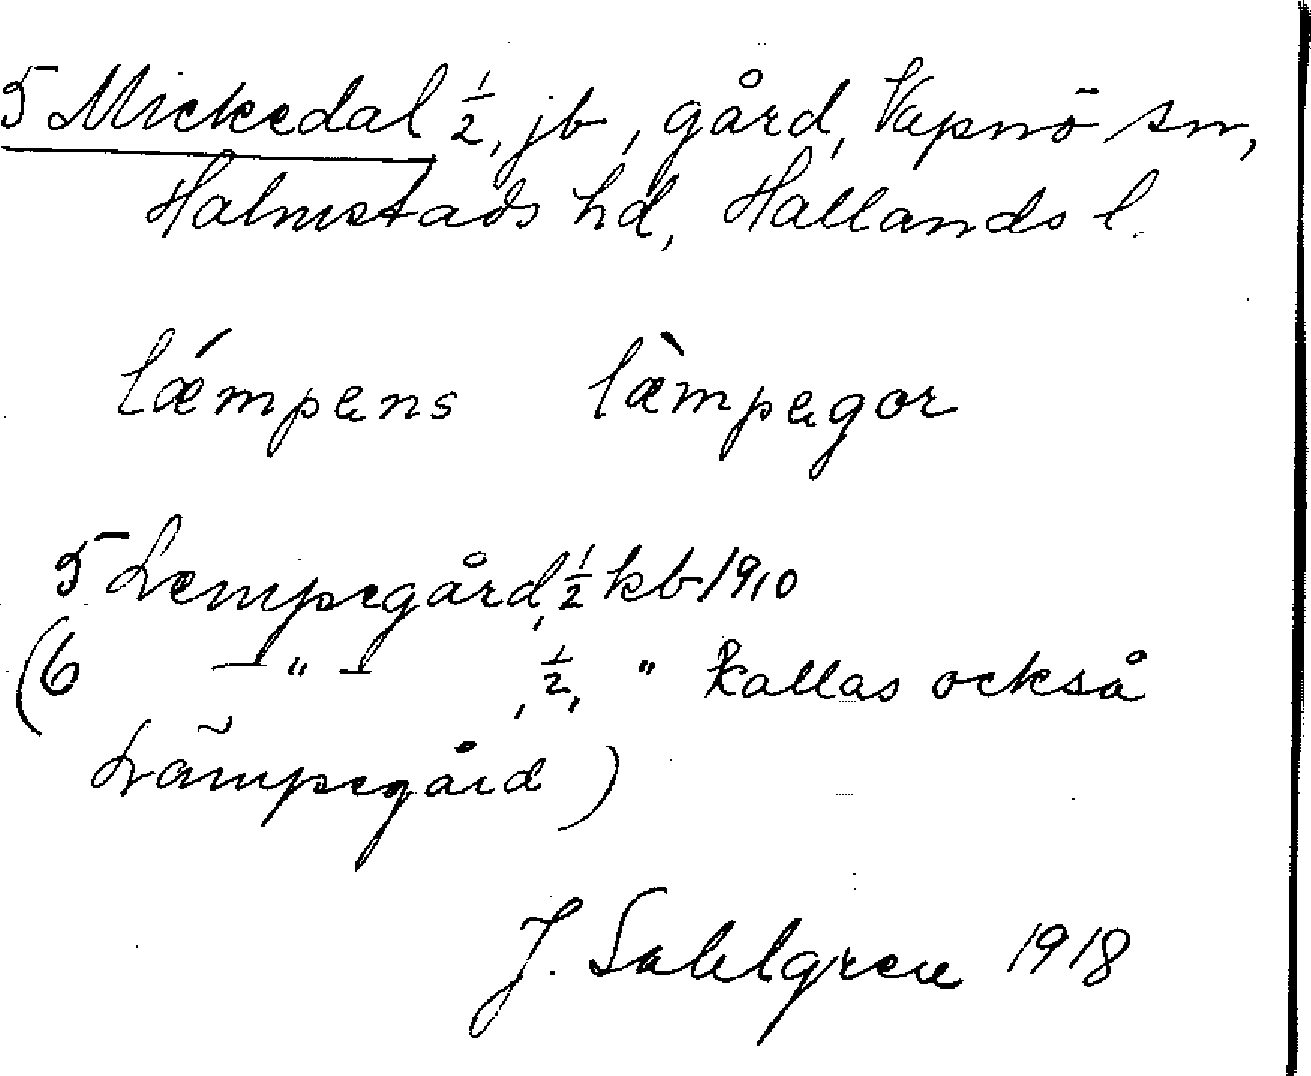 5 Mickedal ½, jb, gård, Vapnö sn,
Halmstads hd, Hallands l.
lǽmpens læ̀mpegor
5 Lempegård, ½ kb 1910
(6 —"— , ½, " kallas också
Lämpegård)
J. Sahlgren 1918